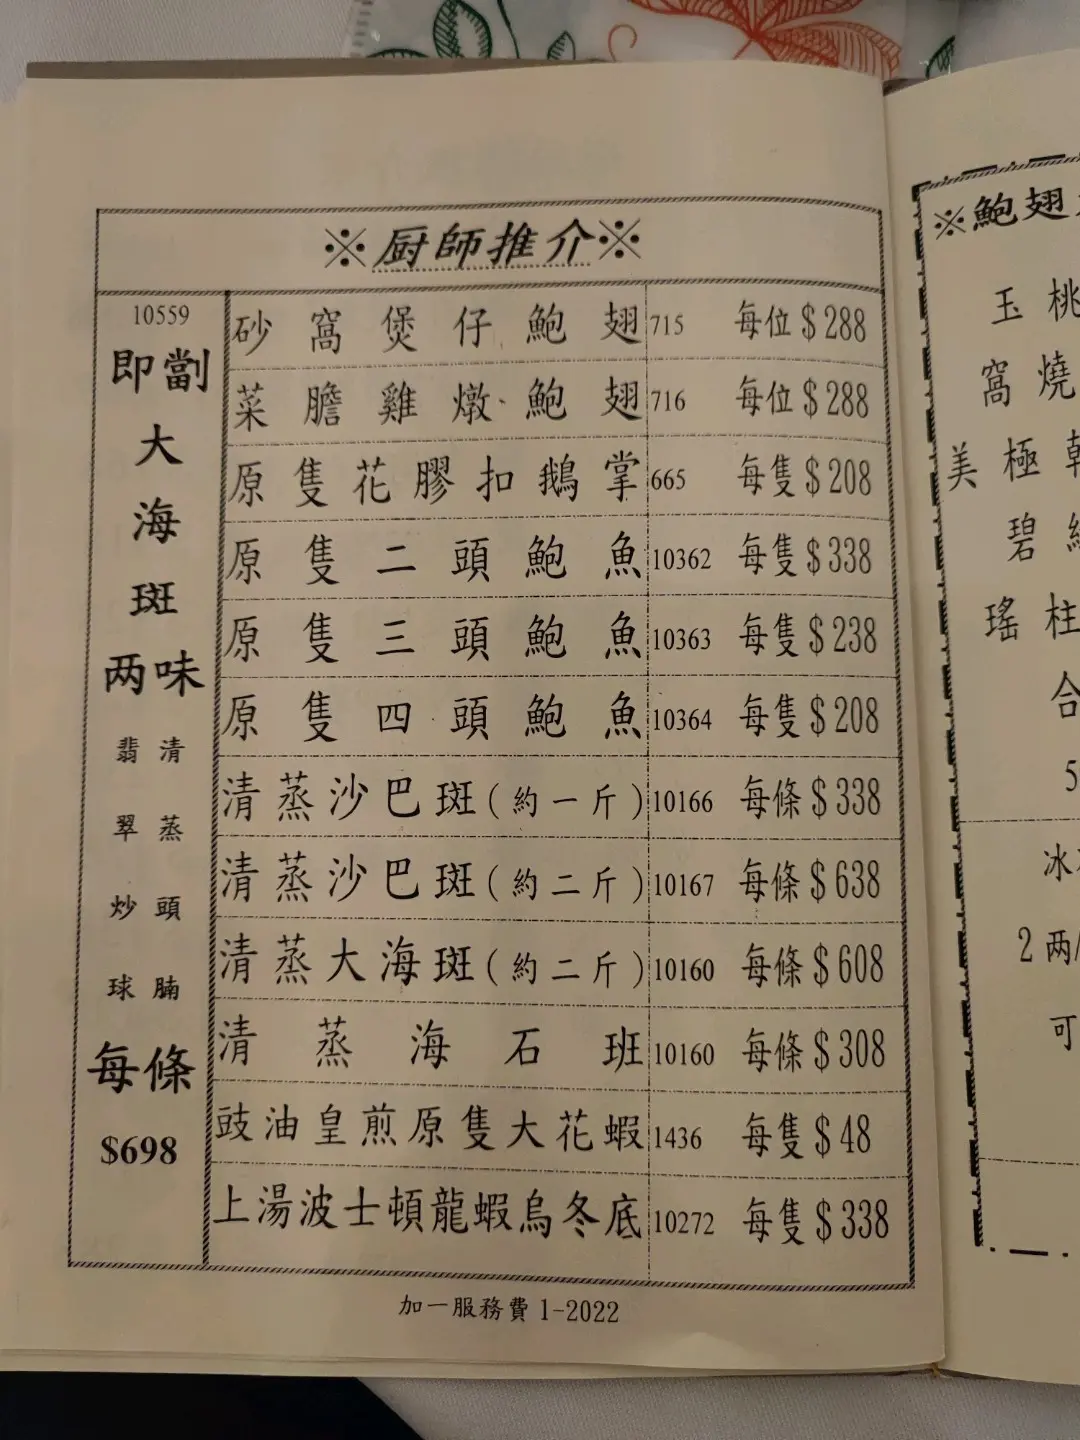 ※厨師推介※
10559
即劏
大
海
斑
两味
翡翠炒球
清蒸頭腩
每條
$698
砂窩煲仔鮑翅 715 每位$288
菜膽雞燉鮑翅 716 每位$288
原隻花膠扣鵝掌 665 每隻$208
原隻二頭鮑魚 10362 每隻$338
原隻三頭鮑魚 10363 每隻$238
原隻四頭鮑魚 10364 每隻$208
清蒸沙巴斑(約一斤) 10166 每條$338
清蒸沙巴斑(約二斤) 10167 每條$638
清蒸大海斑(約二斤) 10160 每條$608
清蒸海石班 10160 每條$308
豉油皇煎原隻大花蝦 1436 每隻$48
上湯波士頓龍蝦烏冬底 10272 每隻$338
加一服務費 1-2022
※鮑翅
玉桃
窩燒
美極乾
碧
瑤柱
合
5
冰
2两/
可